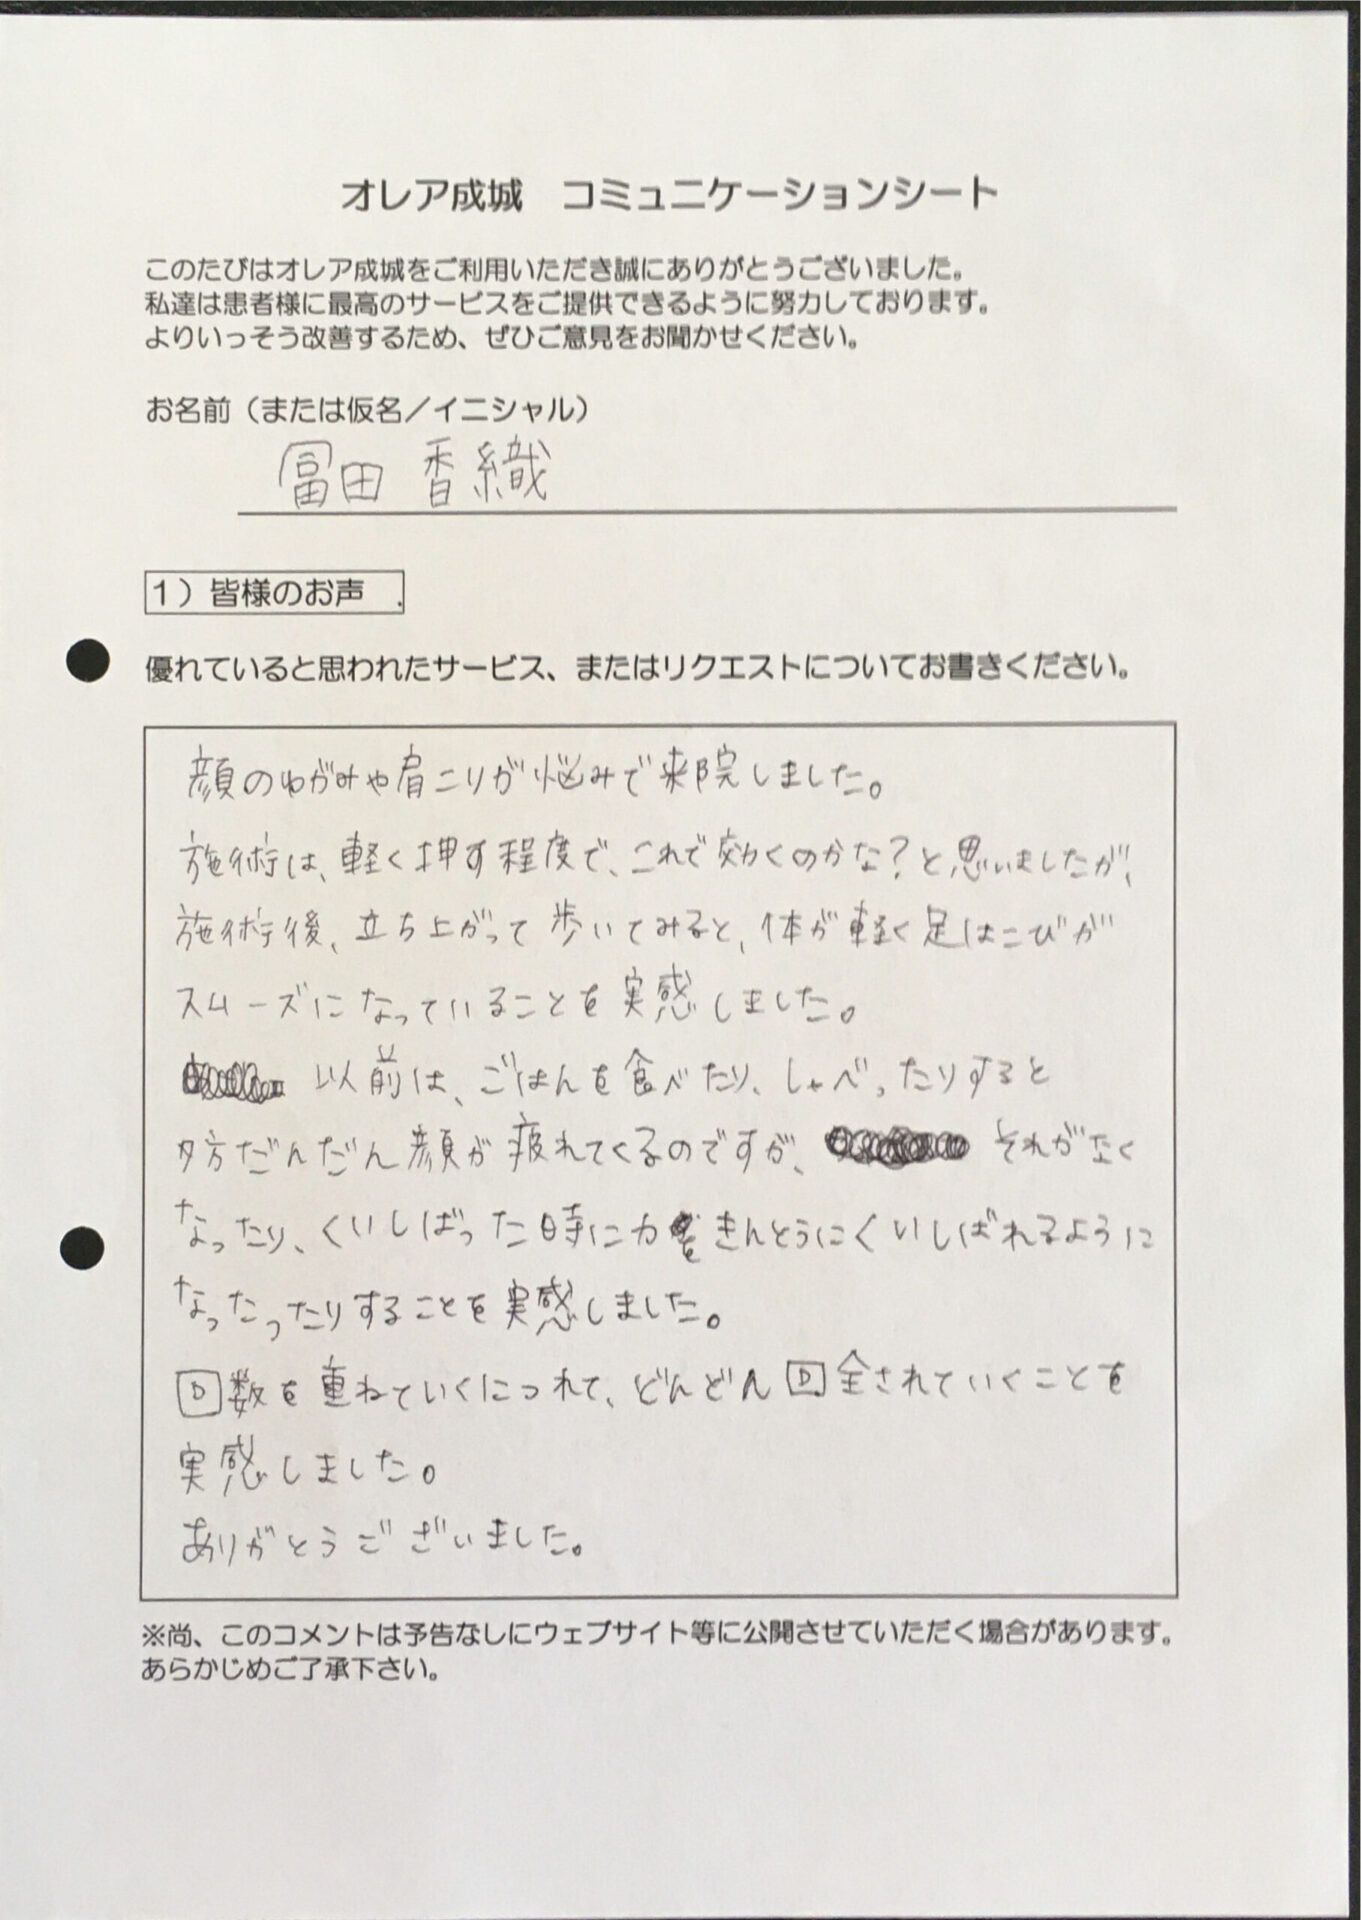 オレア成城　コミュニケーションシート
このたびはオレア成城をご利用いただき誠にありがとうございました。
私達は患者様に最高のサービスをご提供できるように努力しております。
よりいっそう改善するため、ぜひご意見をお聞かせください。
お名前（または仮名／イニシャル）
冨田 香織
1）皆様のお声
優れていると思われたサービス、またはリクエストについてお書きください。
顔のゆがみや肩こりが悩みで来院しました。
施術は、軽く押す程度で、これで効くのかな？と思いましたが、
施術後、立ち上がって歩いてみると、体が軽く足はこびが
スムーズになっていることを実感しました。
以前は、ごはんを食べたり、しゃべったりすると
夕方だんだん顔が疲れてくるのですが、それがなく
なったり、くいしばった時に力をきんとうにくいしばれるように
なったったりすることを実感しました。
回数を重ねていくにつれて、どんどん回全されていくことを
実感しました。
ありがとうございました。
※尚、このコメントは予告なしにウェブサイト等に公開させていただく場合があります。
あらかじめご了承下さい。